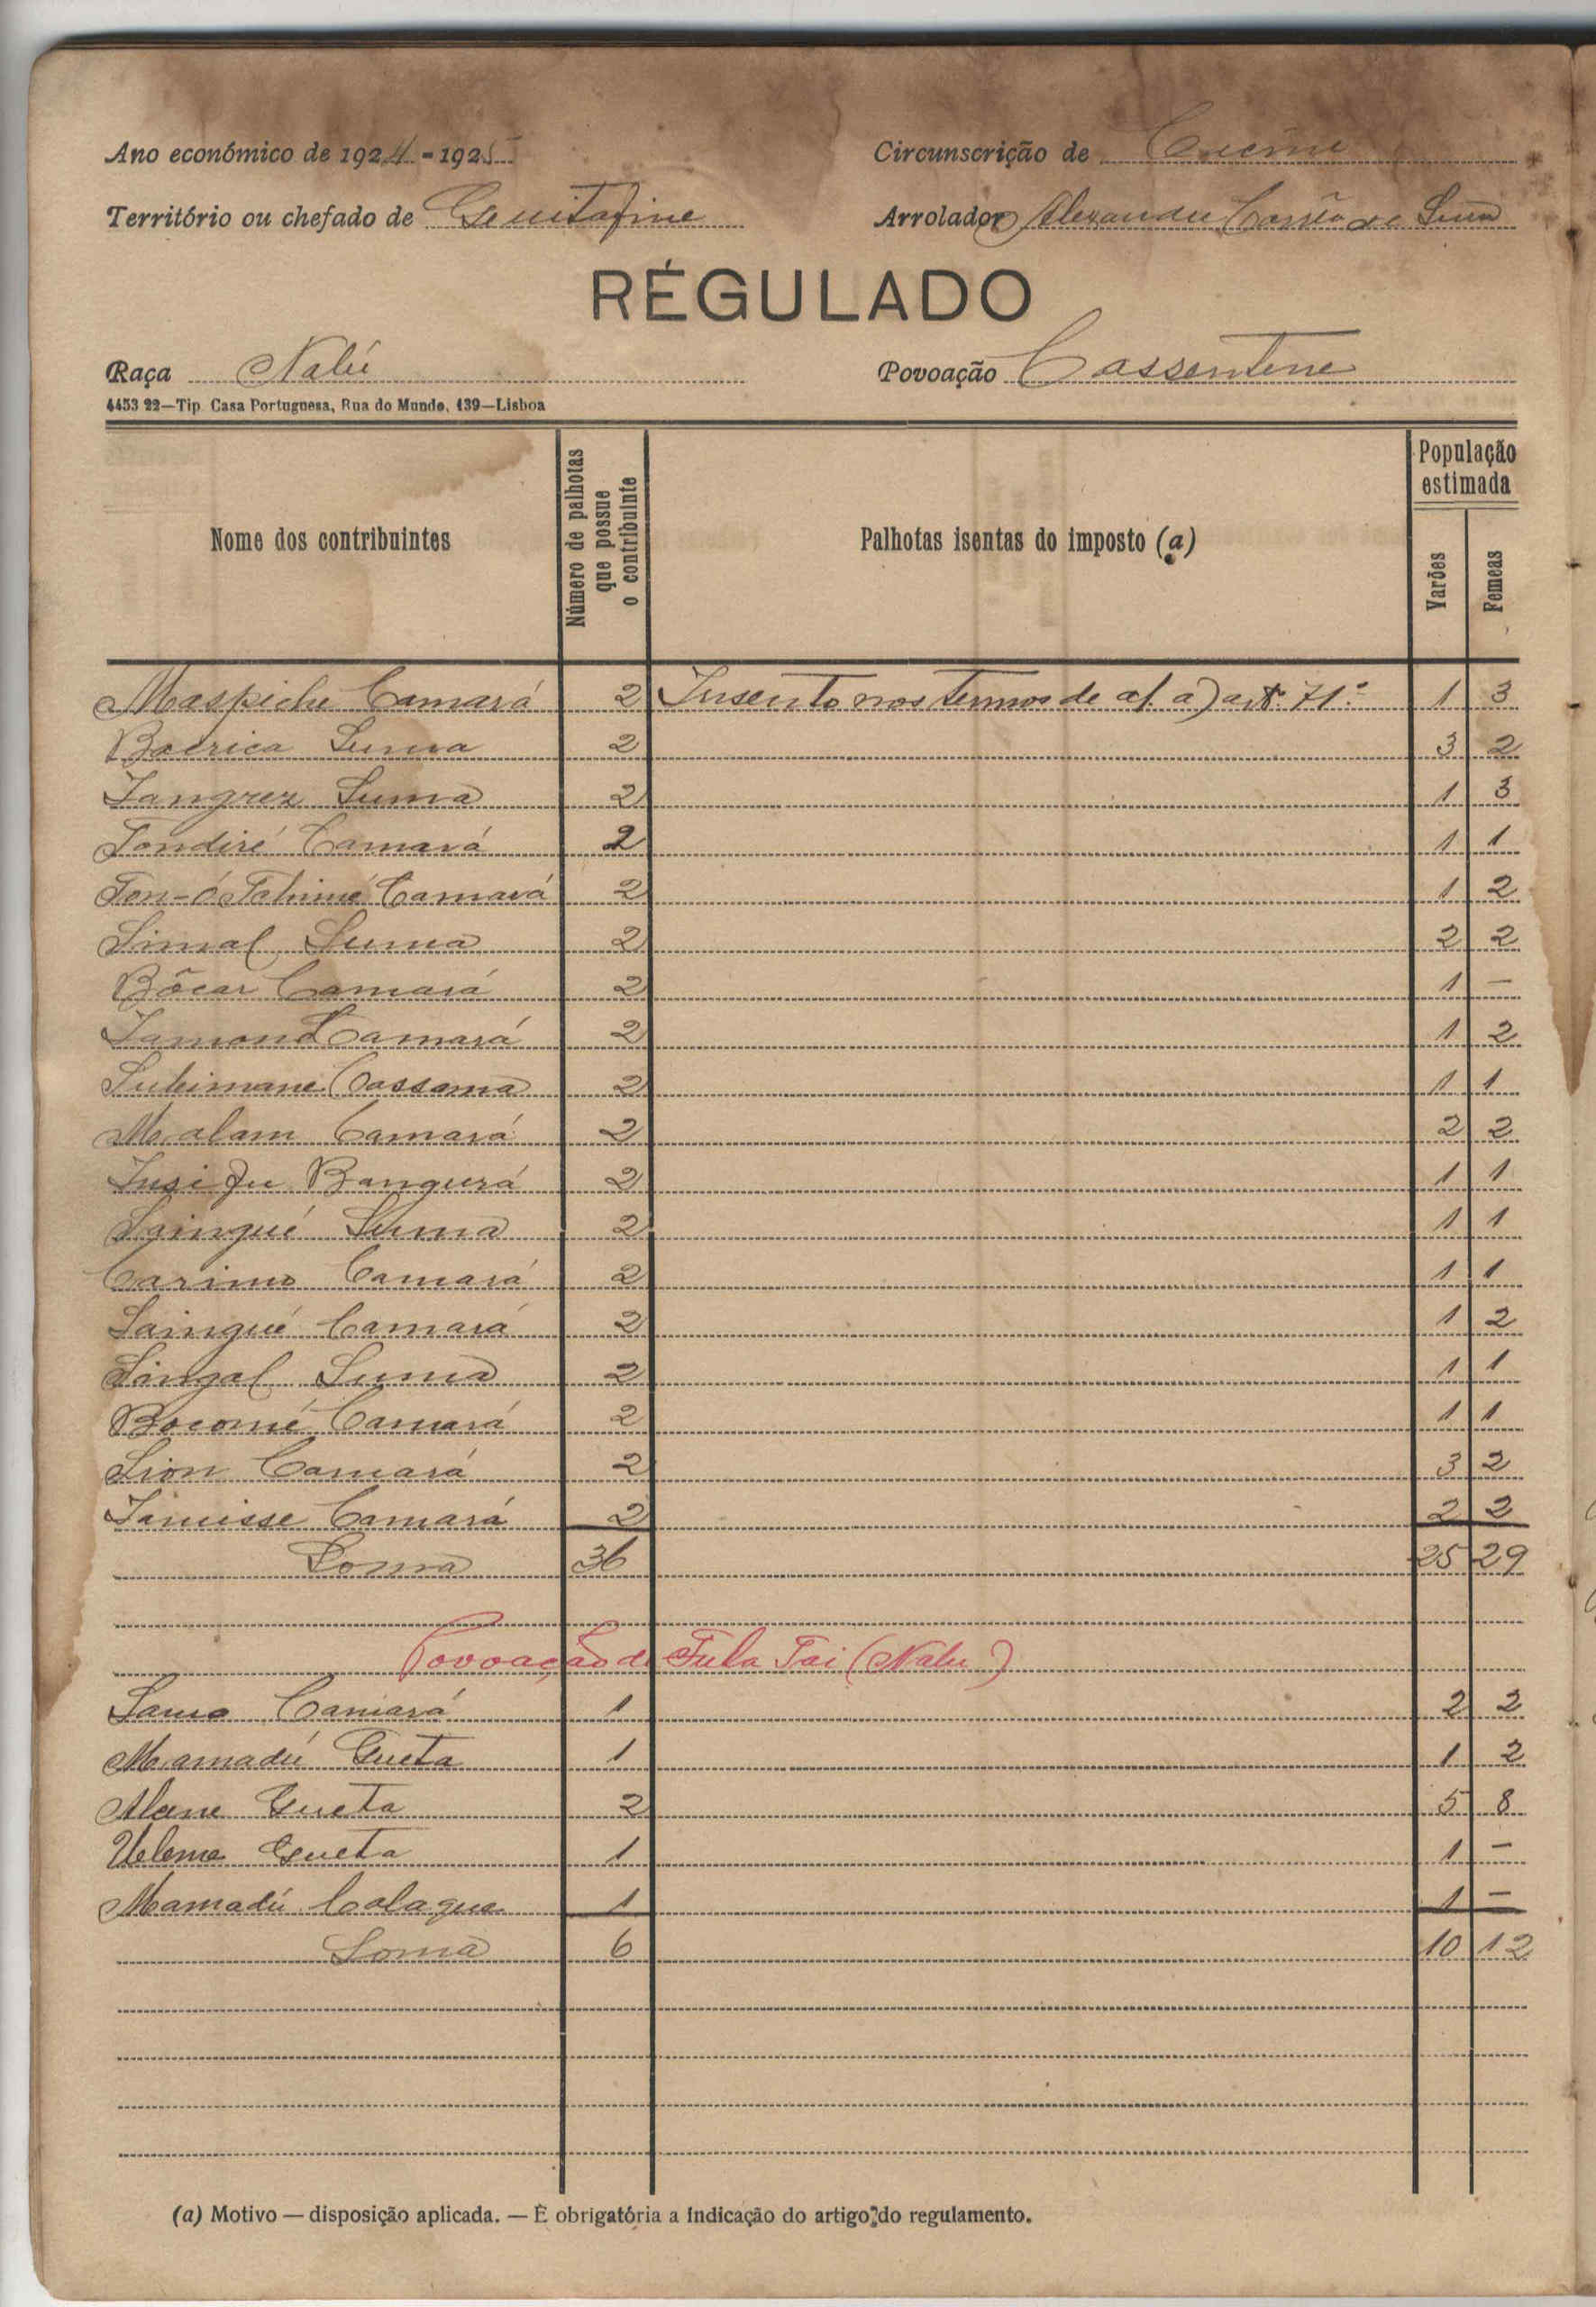 Ano económico de 1924-1925 Circunscrição de
Território ou chefado de Arrolador Alexandre
RÉGULADO
Raça Nalú Povoação Cassentene
4453 22—Tip. Casa Portuguesa, Rua do Mundo, 139—Lisboa
Nome dos contribuintes Número de palhotas que possue o contribuinte Palhotas isentas do imposto (a) População estimada Varões Femeas
Maspiche Camará 2 Insento nos termos de al. a) artº 71º 1 3
Suma 2 3 2
Suma 2 1 3
Tondiré Camará 2 1 1
Camará 2 1 2
Simal Suma 2 2 2
Bôcar Camará 2 1 -
Camará 2 1 2
Suleimane Cassama 2 1 1
Malam Camará 2 2 2
Bangurá 2 1 1
Saingué Suma 2 1 1
Carimo Camará 2 1 1
Saingué Camará 2 1 2
Singal Suma 2 1 1
Bocomé Camará 2 1 1
Sion Camará 2 3 2
Camará 2 2 2
Soma 36 25 29
Povoação de Fula Tai (Nalu)
Camará 1 2 2
Mamadú Gueta 1 1 2
Gueta 2 5 8
Gueta 1 1 -
Mamadú Colaque 1 1 -
Soma 6 10 12
(a) Motivo — disposição aplicada. — É obrigatória a indicação do artigo do regulamento.